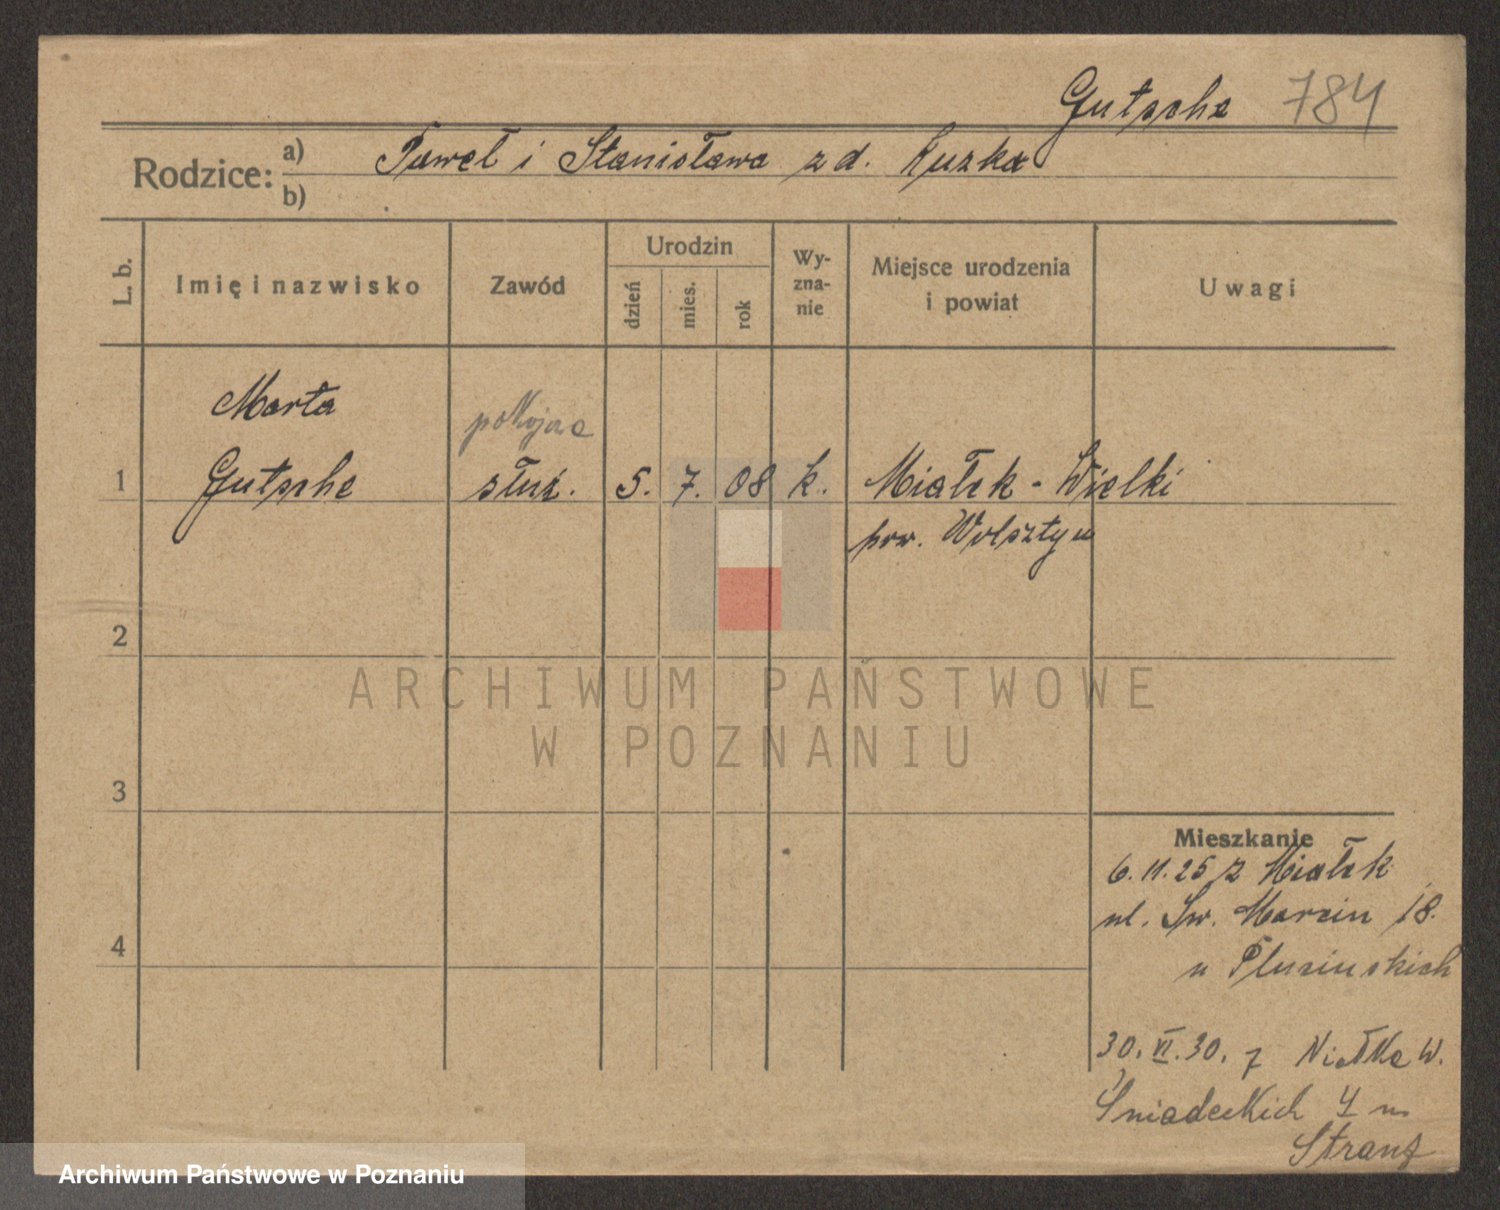 Gutsche 784
Rodzice: a) Paweł i Stanisława z d. Kuzka
b)
L. b.
Imię i nazwisko
Zawód
Urodzin
dzień
mies.
rok
Wy-
zna-
nie
Miejsce urodzenia
i powiat
Uwagi
Marta
pokojowa
1 Gutsche służ. 5. 7. 08 k. Miałek - Wielki
pow. Wolsztyn
2
ARCHIWUM PAŃSTWOWE
W POZNANIU
3
Mieszkanie
6.11.25 z Miałek
ul. Św. Marcin 18.
4
u Plucinskich
30. VI. 30. z Niałka W.
Śniadeckich 4 m
Stranz
Archiwum Państwowe w Poznaniu